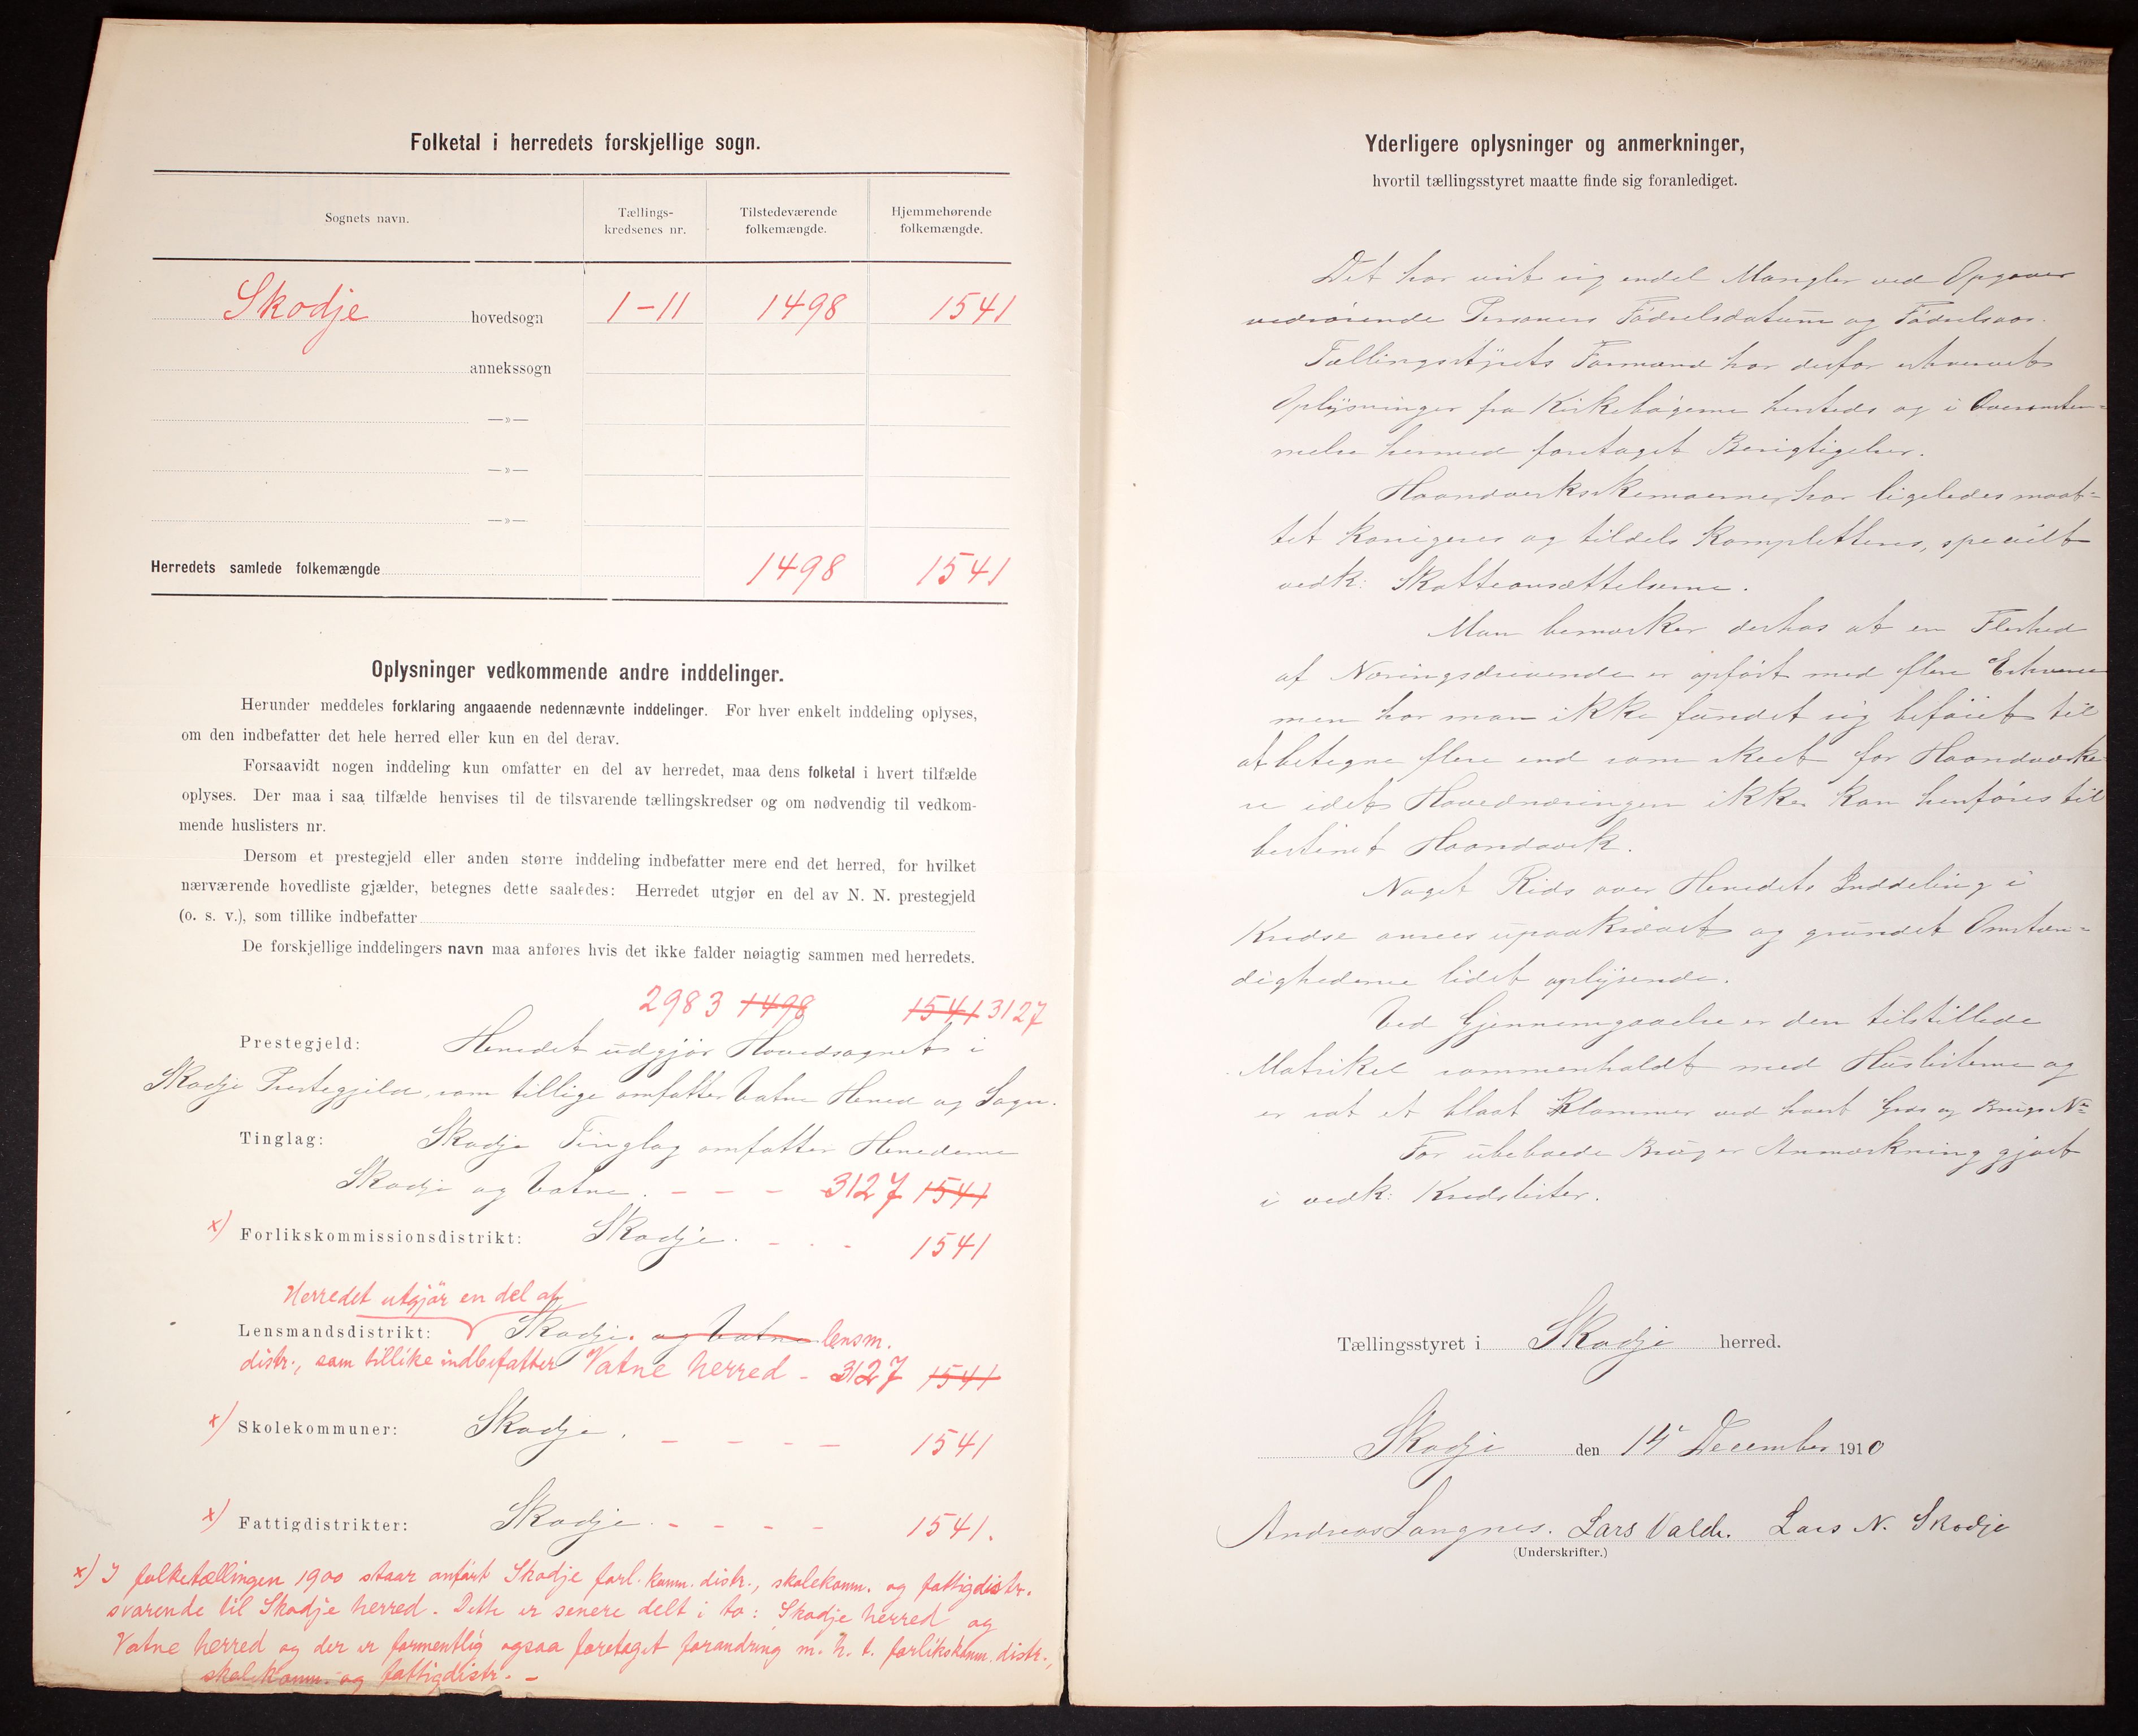 Folketal i herredets forskjellige sogn.
Sognets navn. Tællings- kredsenes nr. Tilstedeværende folkemængde. Hjemmehørende folkemængde.
Skodje hovedsogn 1-11 1498 1541
annekssogn
—»—
—»—
—»—
Herredets samlede folkemængde 1498 1541
Oplysninger vedkommende andre inddelinger.
Herunder meddeles forklaring angaaende nedennævnte inddelinger. For hver enkelt inddeling oplyses,
om den indbefatter det hele herred eller kun en del derav.
Forsaavidt nogen inddeling kun omfatter en del av herredet, maa dens folketal i hvert tilfælde
oplyses. Der maa i saa tilfælde henvises til de tilsvarende tællingskredser og om nødvendig til vedkom-
mende huslisters nr.
Dersom et prestegjeld eller anden større inddeling indbefatter mere end det herred, for hvilket
nærværende hovedliste gjælder, betegnes dette saaledes: Herredet utgjør en del av N. N. prestegjeld
(o. s. v.), som tillike indbefatter
De forskjellige inddelingers navn maa anføres hvis det ikke falder nøiagtig sammen med herredets.
2983 1498 1541 3127
Prestegjeld: Herredet udgjør Hovedsognet i
Skodje Prestegjeld, som tillige omfatter Vatne Herred og Sogn.
Tinglag: Skodje Tinglag omfatter Herrederne
Skodje og Vatne. - - - 3127 1541
x) Forlikskommissionsdistrikt: Skodje. - - - 1541
Herredet utgjør en del af
Lensmandsdistrikt: Skodje. og Vatne lensm.
distr., som tillike indbefatter Vatne herred - 3127 1541
x) Skolekommuner: Skodje. - - - - 1541
x) Fattigdistrikter: Skodje. - - - - 1541.
x) I folketællingen 1900 staar anført Skodje forl. komm. distr., skolekomm. og fattigdistr.
svarende til Skodje herred. Dette er senere delt i to: Skodje herred og
Vatne herred og der er formentlig ogsaa foretaget forandring m. h. t. forlikskomm. distr.,
skolekomm. og fattigdistr. -
Yderligere oplysninger og anmerkninger,
hvortil tællingsstyret maatte finde sig foranlediget.
Det har vist sig endel Mangler ved Opgaver
vedrørende Personers Fødselsdatum og Fødselsaar.
Tællingsstyrets Formand har derfor
Oplysninger fra Kirkebøgerne og i Overensstem=
melse hermed foretaget Berigtigelser.
Haandverksskemaerne har ligeledes maat=
tet korrigeres og tildels kompletteres, specielt
vedk: Skatteansættelserne.
Man bemærker derhos at en Flerhed
af Næringsdrivende er opført med flere Erhverv
men har man ikke fundet sig beføiet til
at betegne flere end som skeet for Haandværke
re idet Hovednæringen ikke kan henføres til
bestemt Haandverk.
Noget Rids over Herredets Inddeling i
Kredse ansees upaakrævet og grundet Omstæn=
dighederne lidet oplysende.
Ved Gjennemgaaelse er den tilstillede
Matrikel sammenholdt med Huslisterne og
er sat et blaat Klammer ved hvert Gaards og Brugs No
For ubeboede Brug er Anmærkning gjort
i vedk: Kredslister.
Tællingsstyret i Skodje herred.
Skodje den 14 December 1910
Andreas Langnes. Lars Valde. Lars N. Skodje
(Underskrifter.)